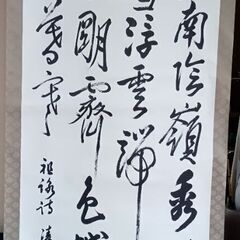 南陰嶺秀
雪浮雲端
明霽色城
暮寒 祖詠詩